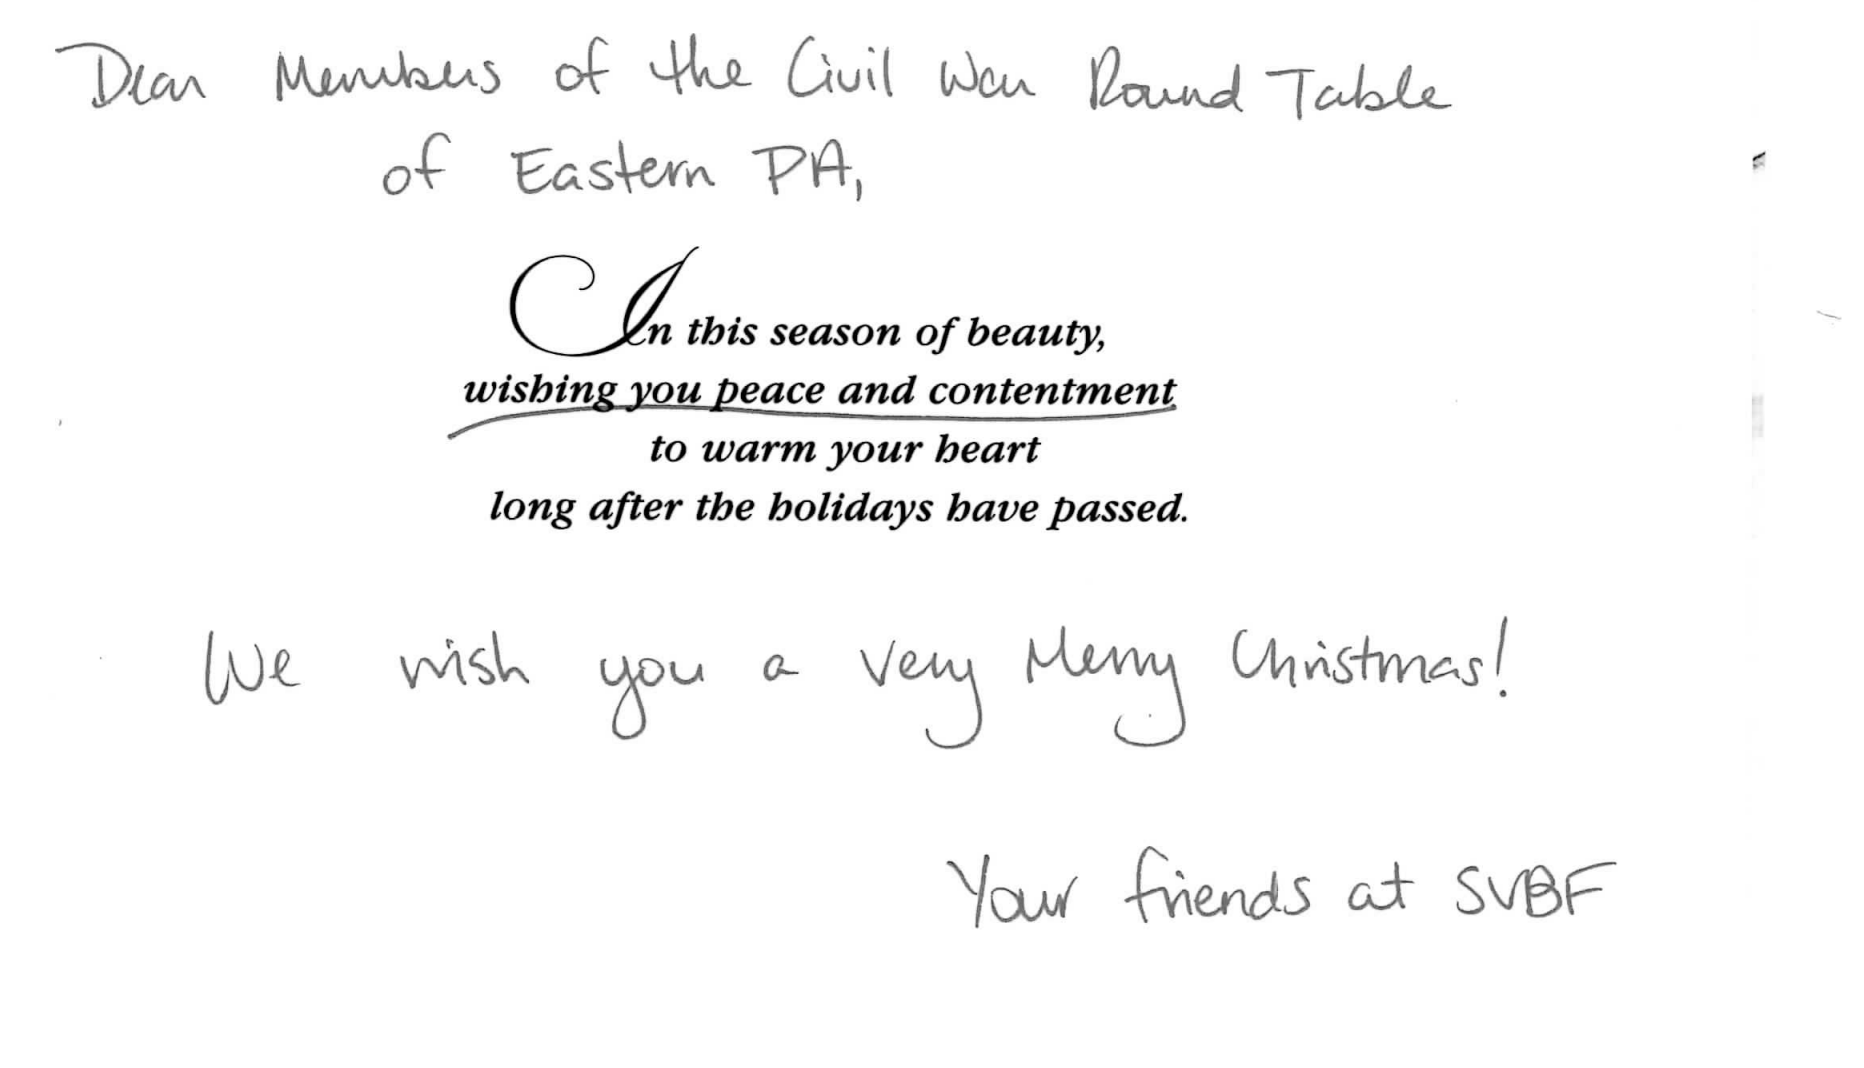 Dear Members of the Civil War Round Table
of Eastern PA,
In this season of beauty,
wishing you peace and contentment
to warm your heart
long after the holidays have passed.
We wish you a very Merry Christmas!
Your friends at SVBF